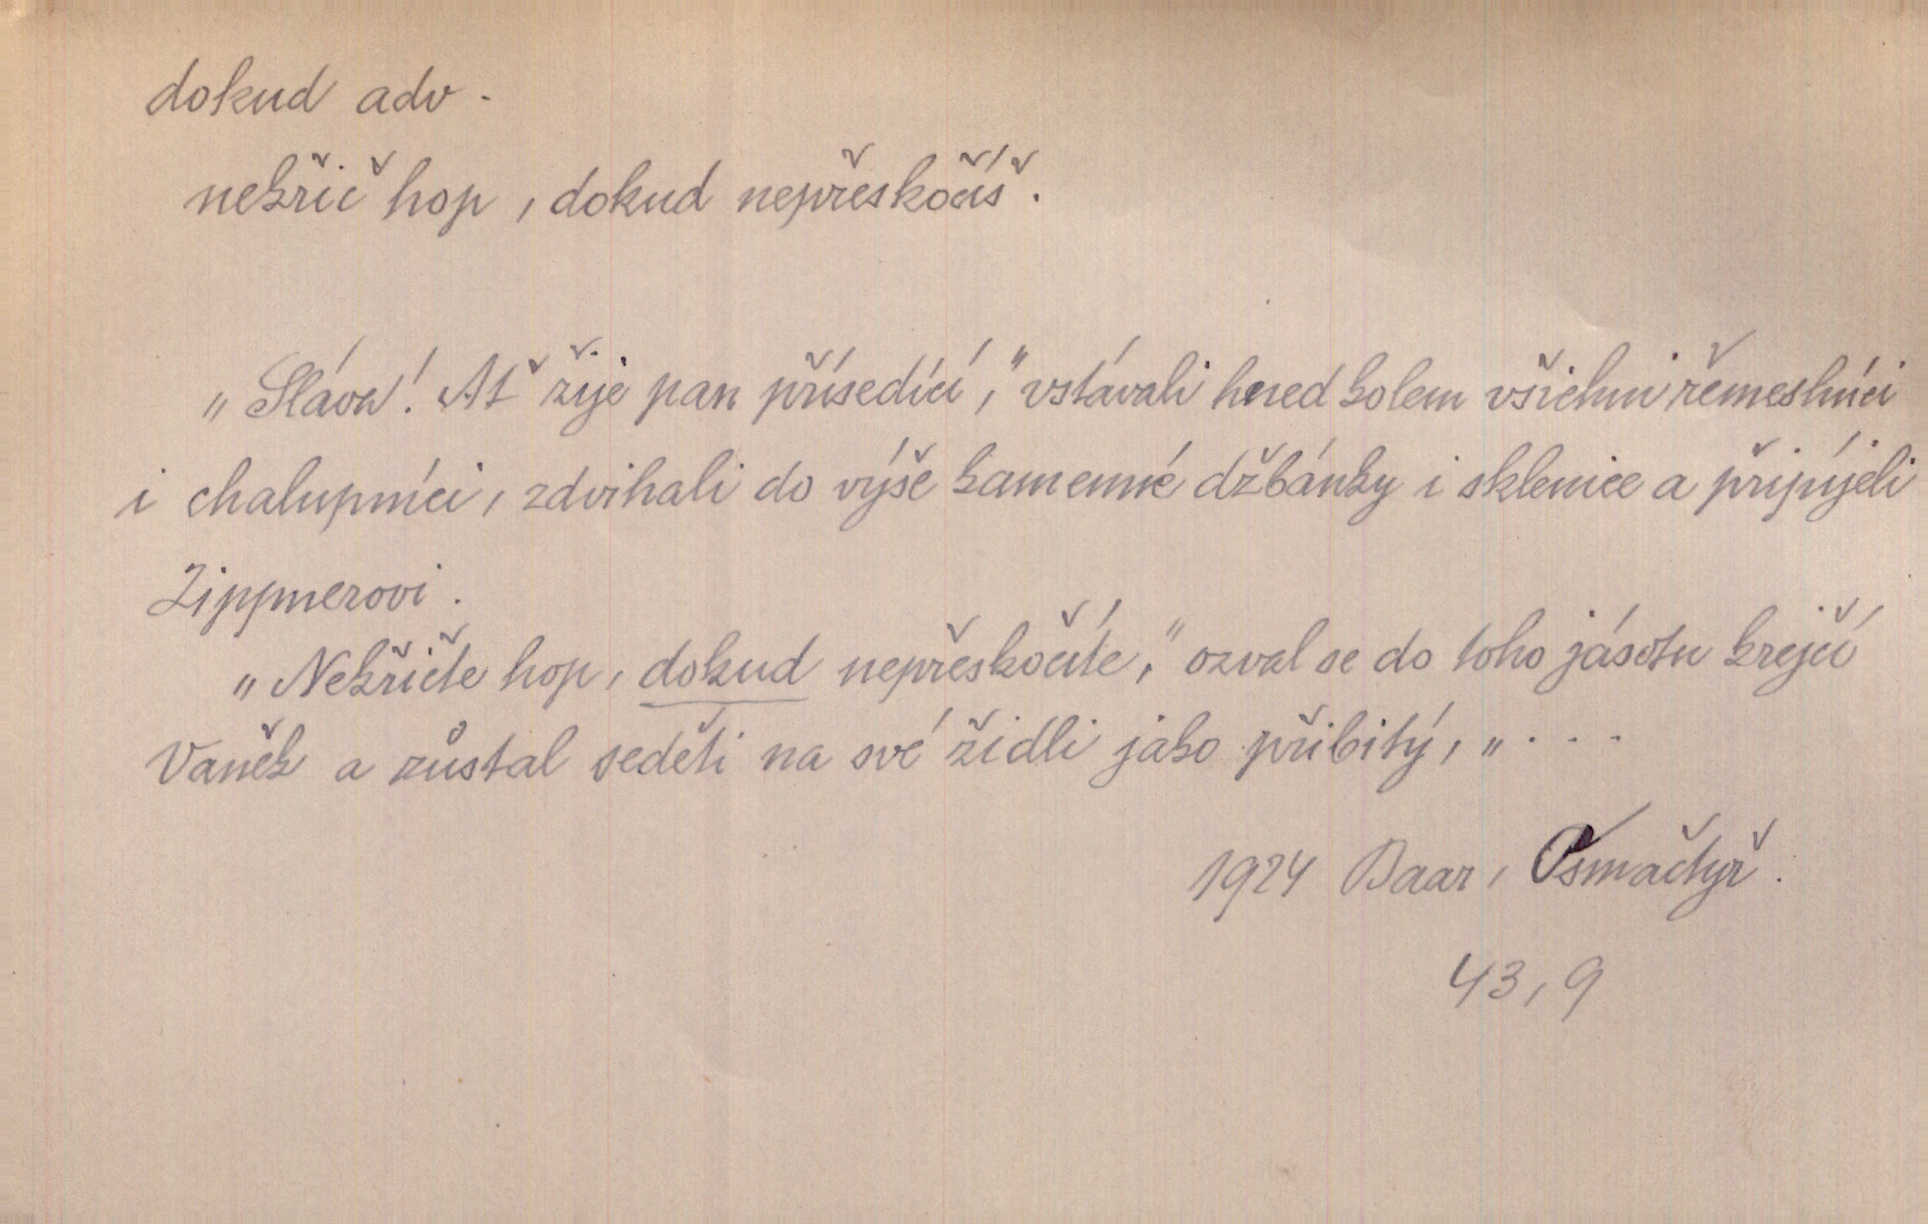 dokud adv.
nekřič hop, dokud nepřeskočíš.
„Sláva! Ať žije pan přísedící," vstávali hned kolem všichni řemeslníci
i chalupníci, zdvihali do výše kamenné džbánky i sklenice a připíjeli
Zippnerovi.
„Nekřičte hop, dokud nepřeskočíte," ozval se do toho jásotu krejčí
Vaněk a zůstal seděti na své židli jako přibitý, „...
1924 Baar, Osmačtyř.
43, 9